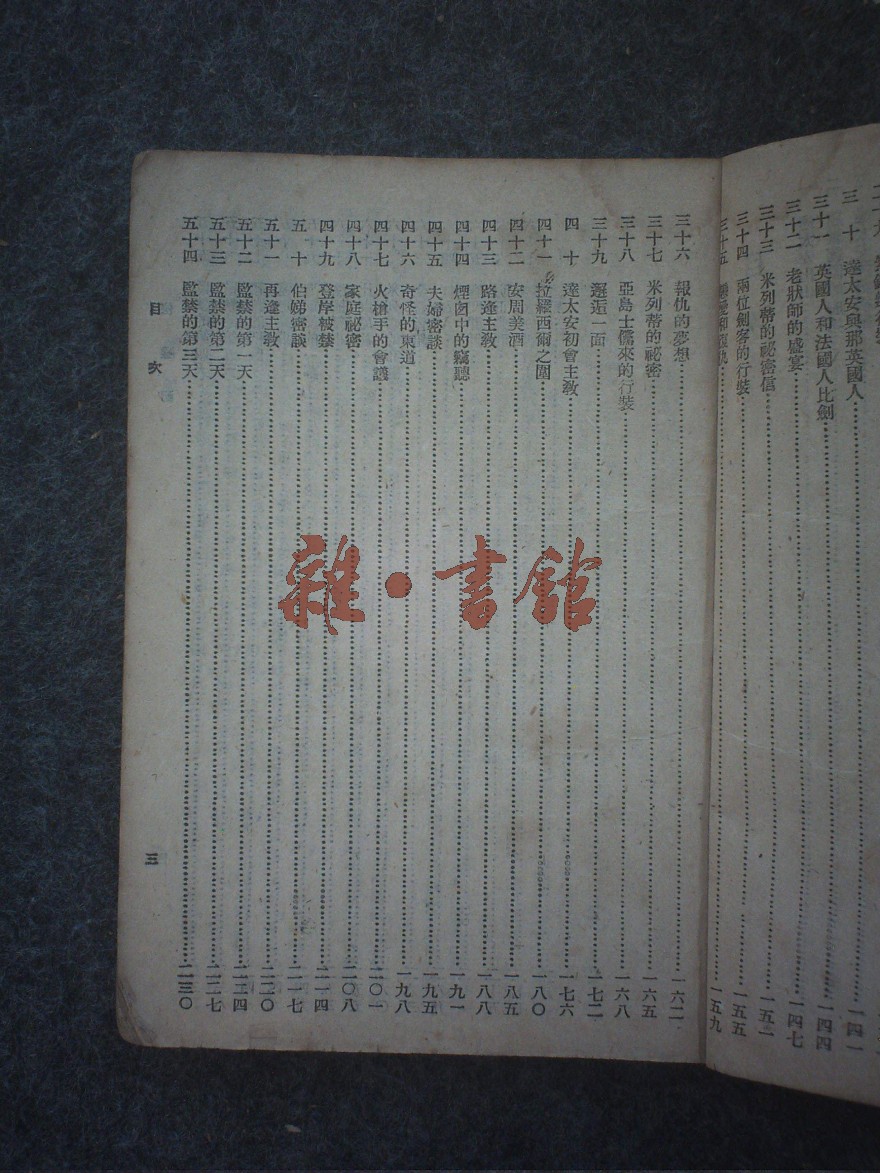 三 十 達太安與那英國人 一四一
三十一 英國人和法國人比劍 一四四
三十二 老狀師的盛宴 一四七
三十三 米列蒂的祕密信 一五一
三十四 兩位劍客的行裝 一五五
三十五 一五九
三十六 報仇的夢想 一六二
三十七 米列蒂的祕密 一六五
三十八 亞島士儻來的行裝 一六八
三十九 邂逅一面 一七二
四 十 達太安初會主教 一七六
四十一 拉羅西爾之圍 一八〇
四十二 安周美酒 一八五
四十三 路逢主教 一八八
四十四 煙囪中的竊聽 一九一
四十五 夫婦密談 一九五
四十六 奇怪的東道 一九八
四十七 火槍手的會議 二〇一
四十八 家庭祕密 二〇八
四十九 登岸被禁 二一四
五 十 伯娣密談 二一七
五十一 再逢主教 二二〇
五十二 監禁的第一天 二二四
五十三 監禁的第二天 二二七
五十四 監禁的第三天 二三〇
目 次 三
雜·書館